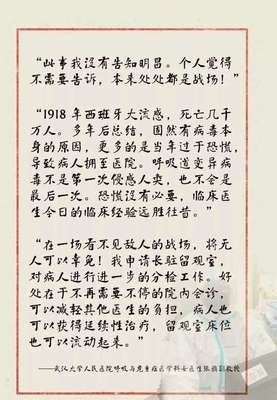 “此事我没有告知明昌。个人觉得
不需要告诉，本来处处都是战场！”
“1918 年西班牙大流感，死亡几千
万人。多年后总结，固然有病毒本
身的原因，更多的是当年过于恐慌，
导致病人拥至医院。呼吸道变异病
毒不是第一次侵感人类，也不会是
最后一次。恐慌没有必要，临床医
生今日的临床经验远胜往昔。”
“在一场看不见敌人的战场，将无
人可以幸免！我申请长驻留观室，
对病人进行进一步的分检工作。好
处在于不再需要不停的院内会诊，
可以减轻其他医生的负担，病人也
可以获得延续性治疗，留观室床位
也可以流动起来。”
——武汉大学人民医院呼吸与危重症医学科女医生张旃副教授